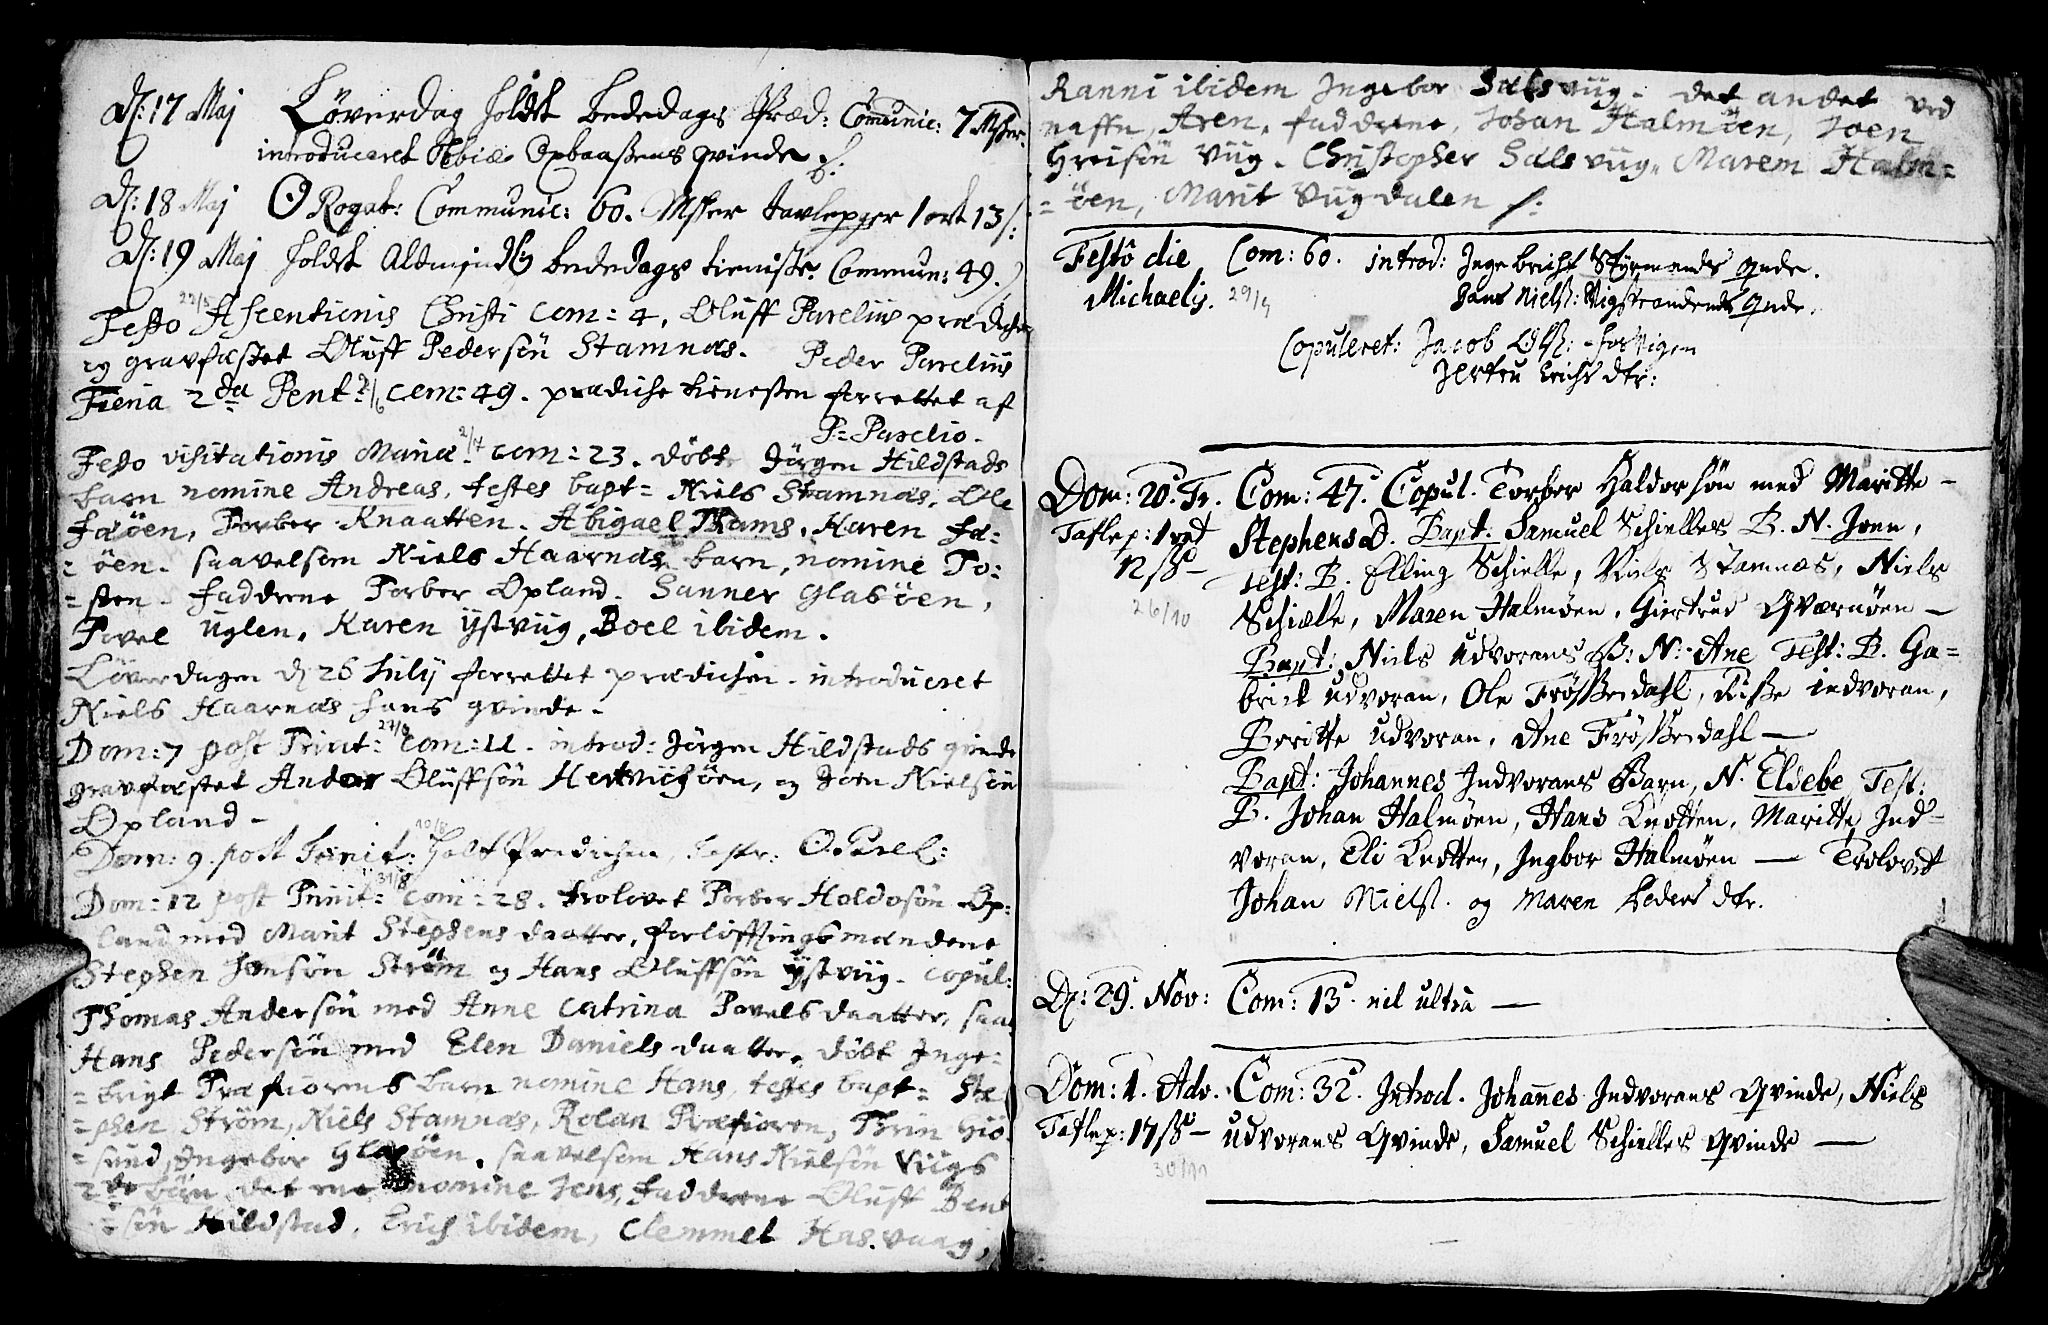 D: 17 Maj Löverdag holdt bededags Præd: Communic: 7 Msker.
introduceret Tobiæ Opbaaßens qvinde
D: 18 Maj Rogat: Communic: 60. Msker tavlepger 1 ort 13 s:
D: 19 Maj holdt Aldmindlig bededags tieniste. Commun: 49.
22/5
Festo Ascentionis Christi com: 4. Oluff Parelius prædiche
og gravfæstet Oluff Pedersön Stamnæs. Peder Parelius
Fieria 2da Pent: 2/6 com: 49. prædiche tienesten forrettet af
P: Parelio.
2/7
Festo visitationis Mariæ com: 23. döbt Jörgen Hildstads
barn nomine Andreas, testes bapt: Niels Stamnæs, Ole
Faöen, Torber Knaatten. Abigael Thams, Karen Fa=
=öen. saavelsom Niels Haarnæs barn, nomine To:
=sten. faddrene Torber Opland. Sanner Glasöen,
Povel Uglen, Karen ystviig, Boel ibidem.
Löverdagen d 26 Julij forrettet prædichen. introduceret
Niels Haarnæs hans qvinde.
27/7
Dom: 7 post Trinit: com: 11. introd: Jörgen Hildstads qvinde
gravfæstet Anders Oluffsön Hestviichöen, og Joen Nielsön
Opland
10/8
Dom: 9. post Trinit: holt Prædichen, O. Parel:
31/8
Dom: 12 post Trinit: com: 28. trolovet Torber Holdosön Op:
land med Marit Stephens daatter, forlöfftingsmændene
Stephen Jonsön Ström og Hans Oluffsön ystviig. copul:
Thomas Andersön med Anne Catrina Povels daatter, saa
Hans Pedersön med Elen Daniels daatter. döbt Inge=
=brigt Præstiorens barn nomine Hans, testes bapt: Ste
=phen Ström, Niels Stamnæs, Rolan Præstioren, Thrin Giö
=sund, Ingebor Glasöen. saavelsom Hans Nielsön Viigs
2de börn det ene nomine Jens, faddrene Oluff Bent
=sön Hildstad. Erich ibidem, Clemmet Has.vaag,
Ranni ibidem Ingebor Salsviig. det andet ved
naffn, Aren, faddrene, Johan Halmöen, Joen
Greisön Viig. Christopher Salsviig. Marem Halm=
=öen, Marit Viigdalen
Festo die Com: 60. introd: Ingebricht Styrmands qnde.
Michaelis. 29/9 Hans Niels: Vigstrandens qnde.
Copuleret: Jacob Ols:
Jertru Erichs dtr:
Dom: 20. Tr. Com: 47. Copul. Torber Haldorsön med Maritte
Taflep: 1 ort Stephens D. Bapt: Samuel Schielles B. N. Joen,
12 ß Test: B. Elling Schielle, Niels Stamnæs, Niels
26/10 Schielle, Maren Halmöen, Giertrud Qværnöen
Bapt: Niels Udvorans B: N: Ane Test: B. Ga=
briel Udvoran, Ole Frösßendahl, Riße indvoran,
Beritte Udvoran, Ane Frösßendahl
Bapt: Johannes Indvorans Barn, N. Eldebe Test:
B. Johan Halmöen, Hans Knotten, Maritte Ind=
voran, Eli Knotten, Ingbor Halmöen Trolovet
Johan Niels. og Maren Peders dtr.
D: 29. Nov: Com: 13. nil ultra
Dom: 1. Adv. Com: 32. Introd. Johannes Indvorans Qvinde, Niels
Taflep: 17 ß Udvorans Qvinde, Samuel Schielles Qvinde
30/11